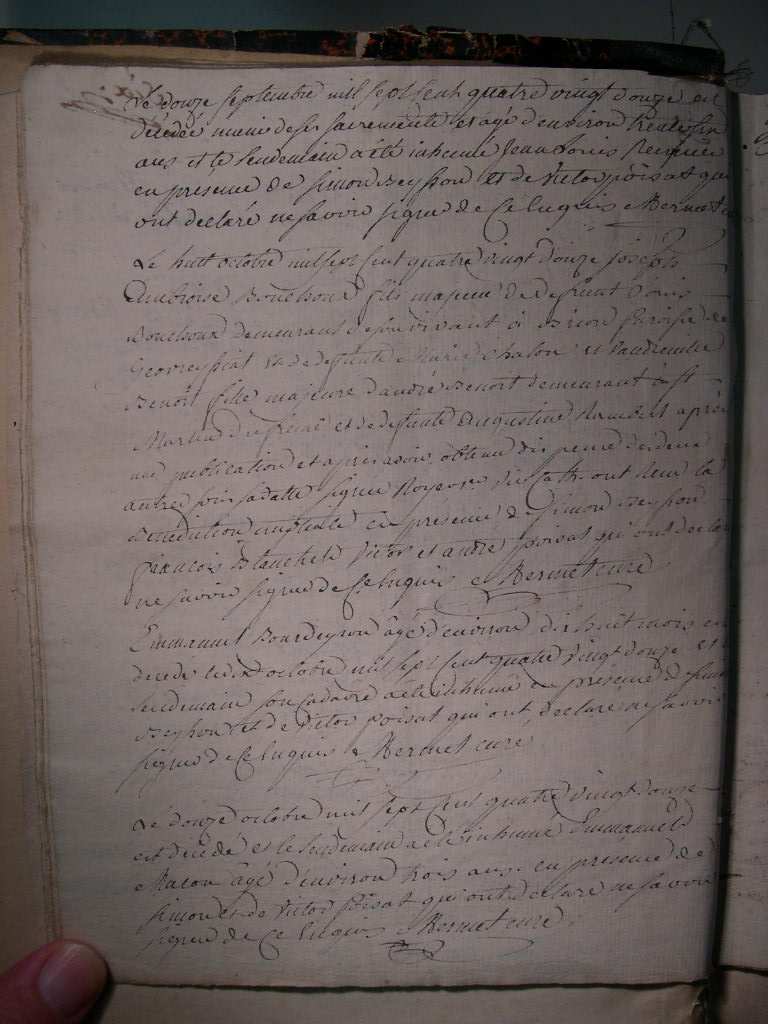 Le douze septembre mil sept cent quatre vingt douze est
décédé muni de ses sacrements et agé d'environ trente six
ans et le lendemain a été inhumé Jean Louis
en presence de Simon Beysson et de Victor poisat qui
ont declaré ne savoir signer de ce enquis Bermet
Le huit octobre mil sept cent quatre vingt douze joseph
Ambroise Bouchoux fils majeur de defunt Denis
Bouchoux demeurant de son vivant à paroisse de
Geovreyssiat et de defunte Marie Chalon et
Benoit fille majeure d'andré Benoit demeurant à st
Martin du frène et de defunte Augustine humbert après
une publication et après avoir obtenu dispense des deux
autres ont reçu la
Benediction nuptiale en presence de Simon Beysson
françois Blanchet Victor et andré poisat qui ont declaré
ne savoir signer de ce enquis Bermet curé
Emmanuel Bourdeyron âgé d'environ dix huit mois est
decedé le dix octobre mil sept cent quatre vingt douze et le
lendemain son cadavre a été inhumé en présence de Simon
Beysson et de Victor poisat qui ont declaré ne savoir
signer de ce enquis Bermet curé
Le douze octobre mil sept cent quatre vingt douze
est décédé et le lendemain a été inhumé Emmanuel
Macon âgé d'environ trois ans en presence de
simon et de Victor poisat qui ont declaré ne savoir
signer de ce enquis Bermet curé